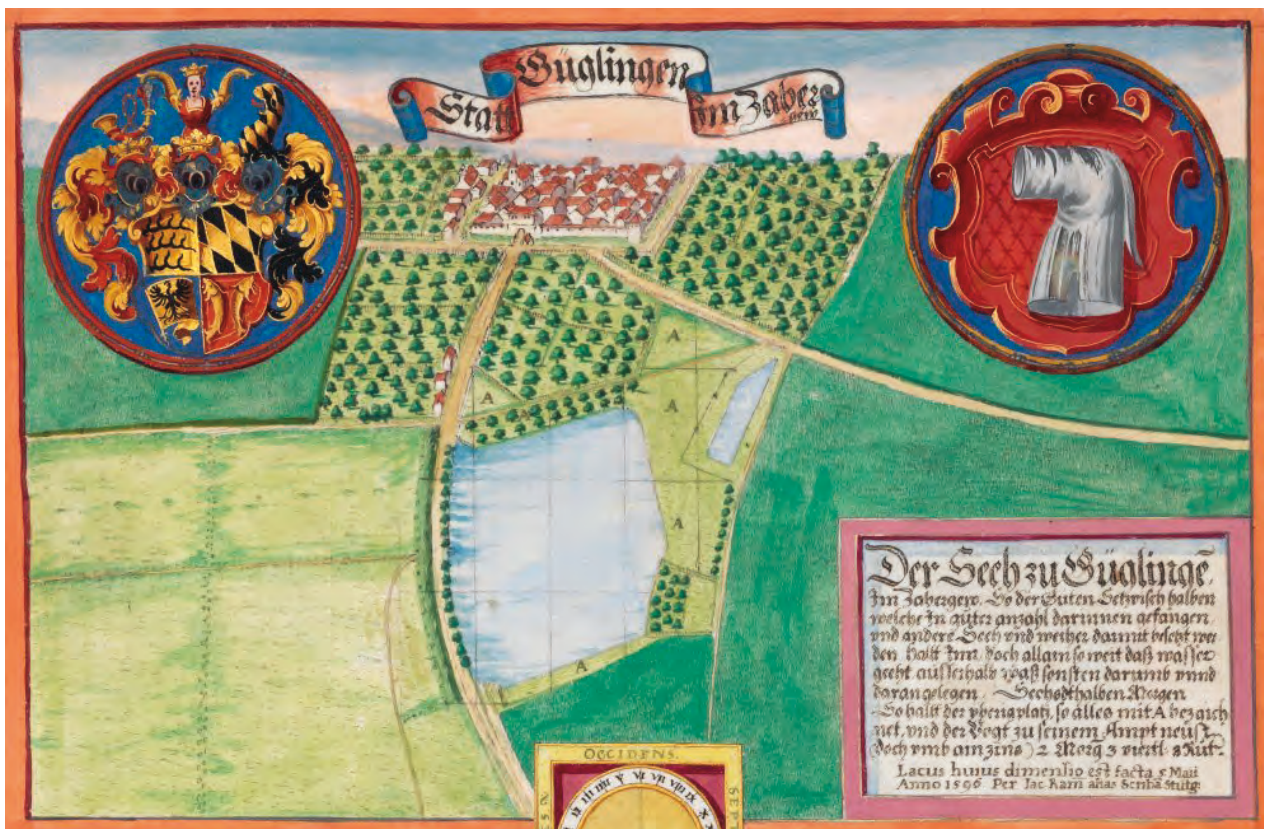 Statt Güglingen Im Zaber
gew
A
A
A
A
A
A
Der Seeh zu Güglingē
Im Zabergew. So der Guten Setzvisch halben
welche In guter anzahl darinnen gefangen
vnd andere Seeh vnd weiher damit besetzt wer
den halt Inn doch allain so weit daß wasser
geeht ausserhalb waß sonsten darumb vnnd
daran gelegen. Sechsdthalben Morgen
So hallt der platz, so alles mit A bezaich
net, vnd der Vogt zu seinem Ampt neüst
doch vmb ain zins) 2 Morg 3 viertl 8 Rut.
Lacus huius dimensio est facta 5 Maii
Anno 1596 Per Iac Ram alias Scriba Stutg:
OCCIDENS.
V VI VII VIII IX X
SEPT